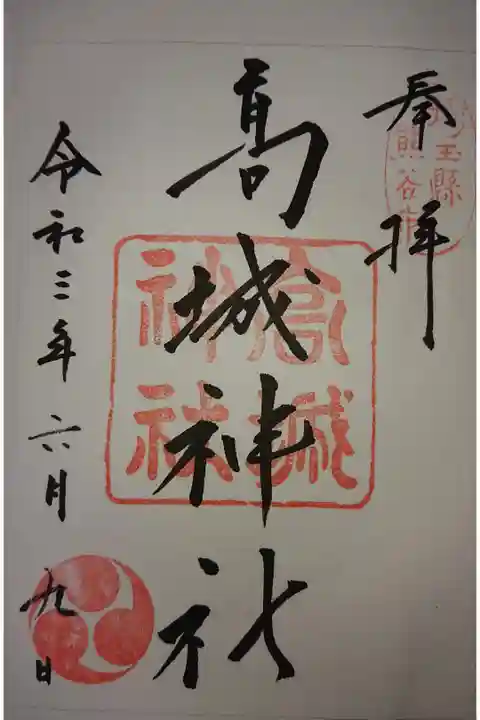 奉拝
埼玉縣
熊谷市
高城神社
高城
神社
令和三年六月九日